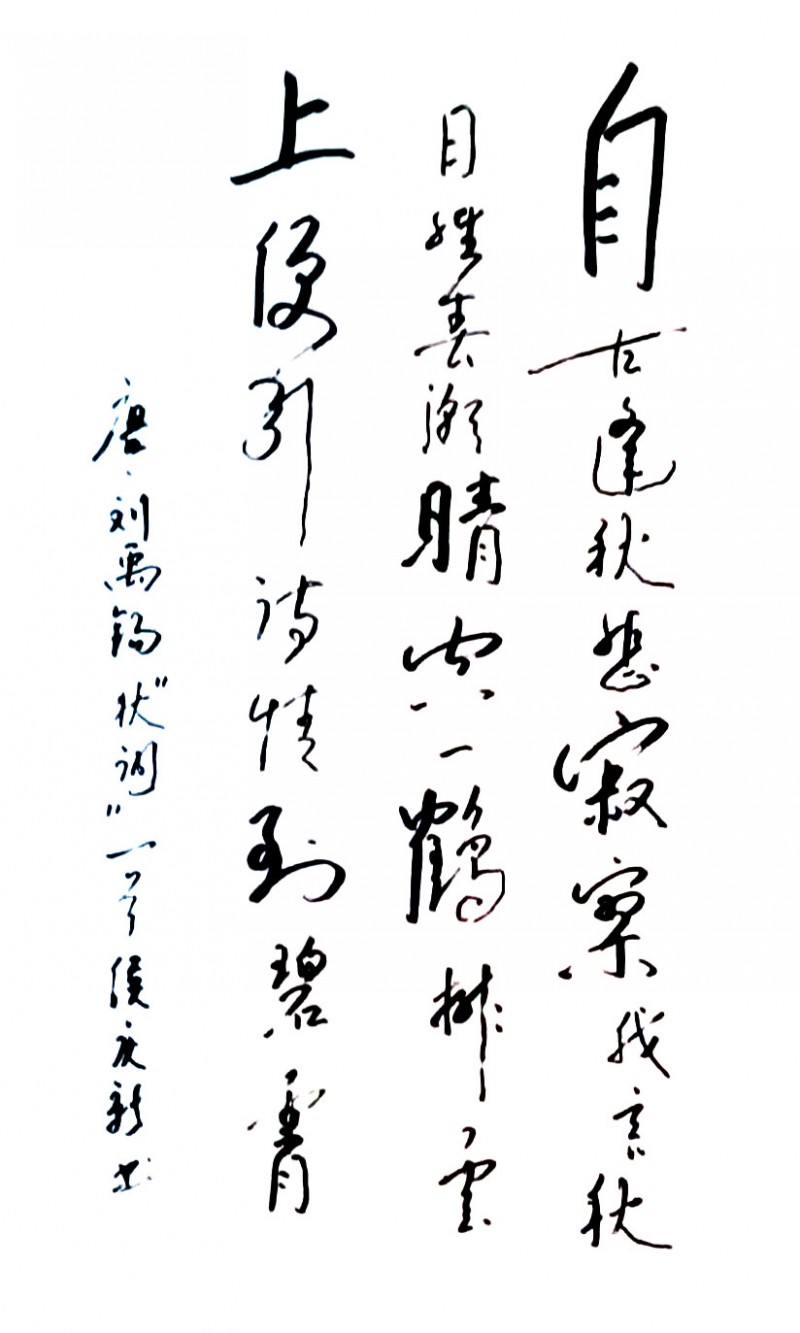 自古逢秋悲寂寥我言秋
日胜春潮晴空一鹤排雲
上便引诗情到碧霄
唐·刘禹锡“秋词”一首侯庆新书